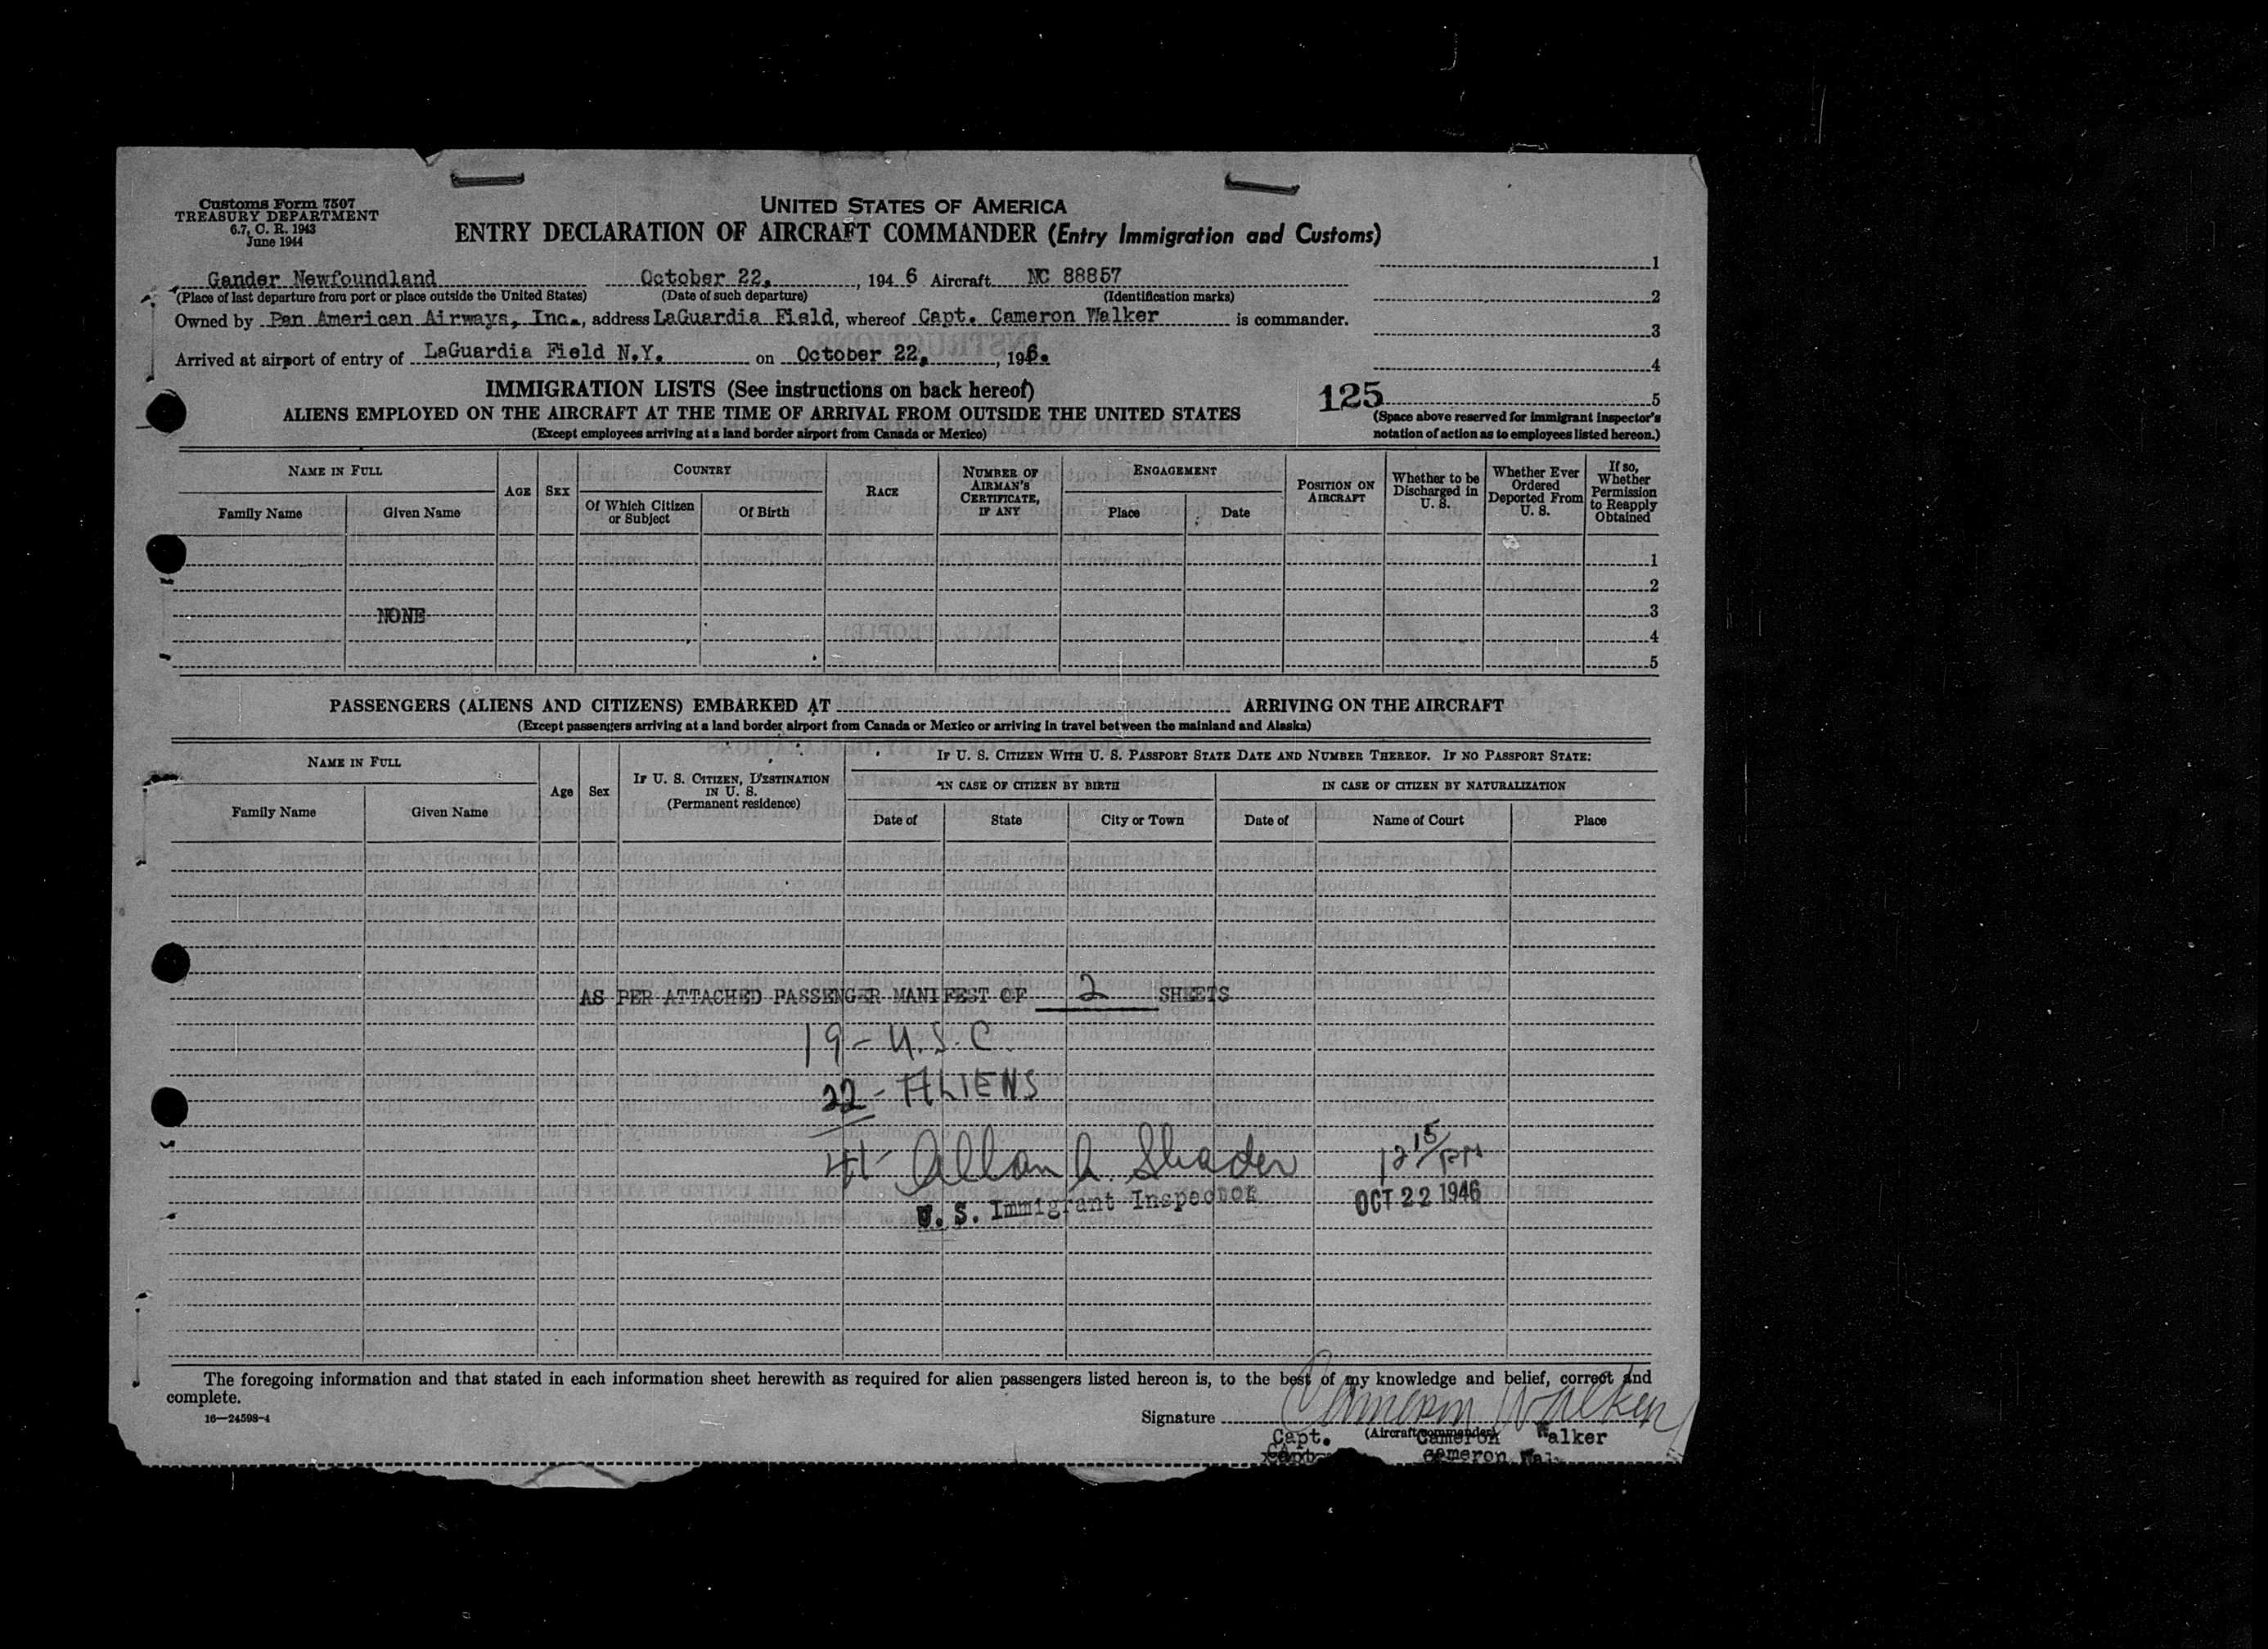 Customs Form 7507
TREASURY DEPARTMENT
6.7, C. R. 1943
June 1944
UNITED STATES OF AMERICA
ENTRY DECLARATION OF AIRCRAFT COMMANDER (Entry Immigration and Customs)
Gander Newfoundland October 22, , 194 6 Aircraft NC 88857
(Place of last departure from port or place outside the United States) (Date of such departure) (Identification marks)
Owned by Pan American Airways, Inc., address LaGuardia Field, whereof Capt. Cameron Walker is commander.
Arrived at airport of entry of LaGuardia Field N.Y. on October 22, , 1946.
1
2
3
4
5
125
(Space above reserved for immigrant inspector's
notation of action as to employees listed hereon.)
IMMIGRATION LISTS (See instructions on back hereof)
ALIENS EMPLOYED ON THE AIRCRAFT AT THE TIME OF ARRIVAL FROM OUTSIDE THE UNITED STATES
(Except employees arriving at a land border airport from Canada or Mexico)
NAME IN FULL
Family Name Given Name
AGE
SEX
COUNTRY
Of Which Citizen or Subject Of Birth
RACE
NUMBER OF AIRMAN'S CERTIFICATE, IF ANY
ENGAGEMENT
Place Date
POSITION ON AIRCRAFT
Whether to be Discharged in U. S.
Whether Ever Ordered Deported From U. S.
If so, Whether Permission to Reapply Obtained
1
2
NONE 3
4
5
PASSENGERS (ALIENS AND CITIZENS) EMBARKED AT ARRIVING ON THE AIRCRAFT
(Except passengers arriving at a land border airport from Canada or Mexico or arriving in travel between the mainland and Alaska)
NAME IN FULL
Family Name Given Name
Age
Sex
IF U. S. CITIZEN, DESTINATION IN U. S.
(Permanent residence)
IF U. S. CITIZEN WITH U. S. PASSPORT STATE DATE AND NUMBER THEREOF. IF NO PASSPORT STATE:
IN CASE OF CITIZEN BY BIRTH IN CASE OF CITIZEN BY NATURALIZATION
Date of State City or Town Date of Name of Court Place
AS PER ATTACHED PASSENGER MANIFEST OF 2 SHEETS
19 - U.S.C.
22 - ALIENS
41 Allan A. Shader 12 15/PM
U. S. Immigrant Inspector OCT 22 1946
The foregoing information and that stated in each information sheet herewith as required for alien passengers listed hereon is, to the best of my knowledge and belief, correct and
complete.
16—24598-4
Signature Cameron Walker
(Aircraft commander)
Capt. Cameron Walker
Capt Cameron Wal